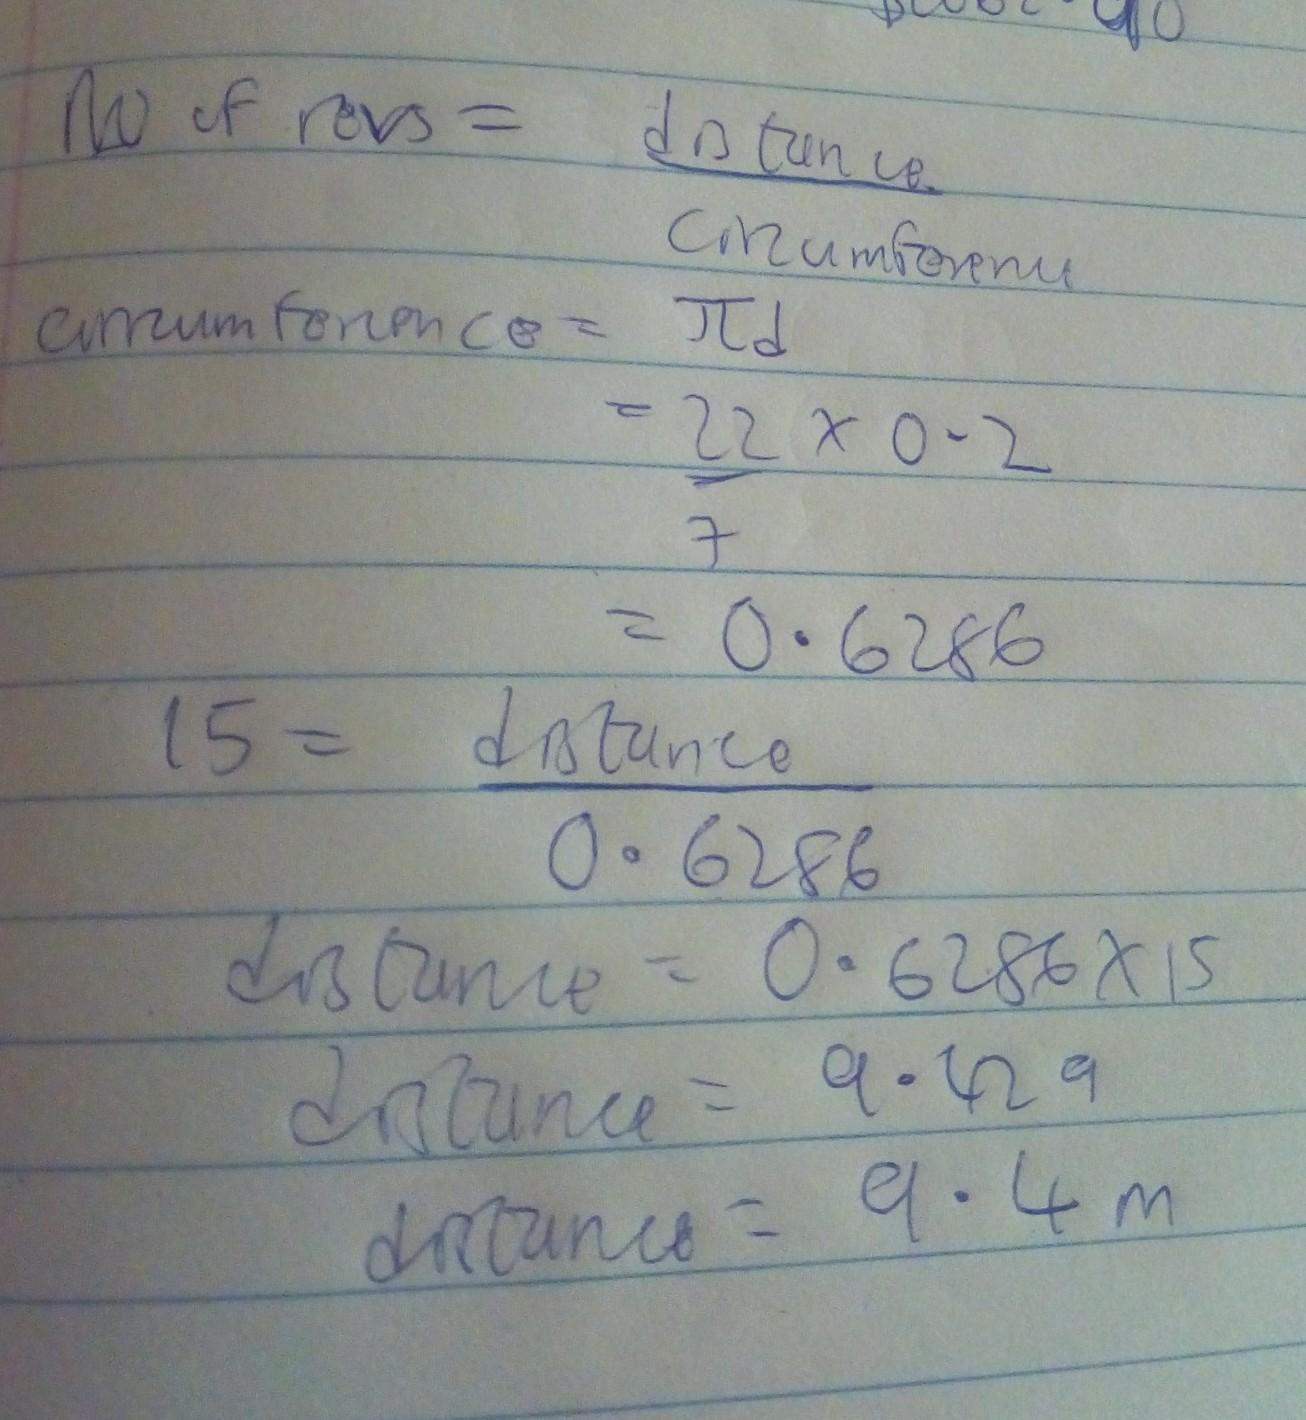 No of revs = distance
circumference
circumference = πd
= 22 × 0.2
7
= 0.6286
15 = distance
0.6286
distance = 0.6286 × 15
distance = 9.429
distance = 9.4 m